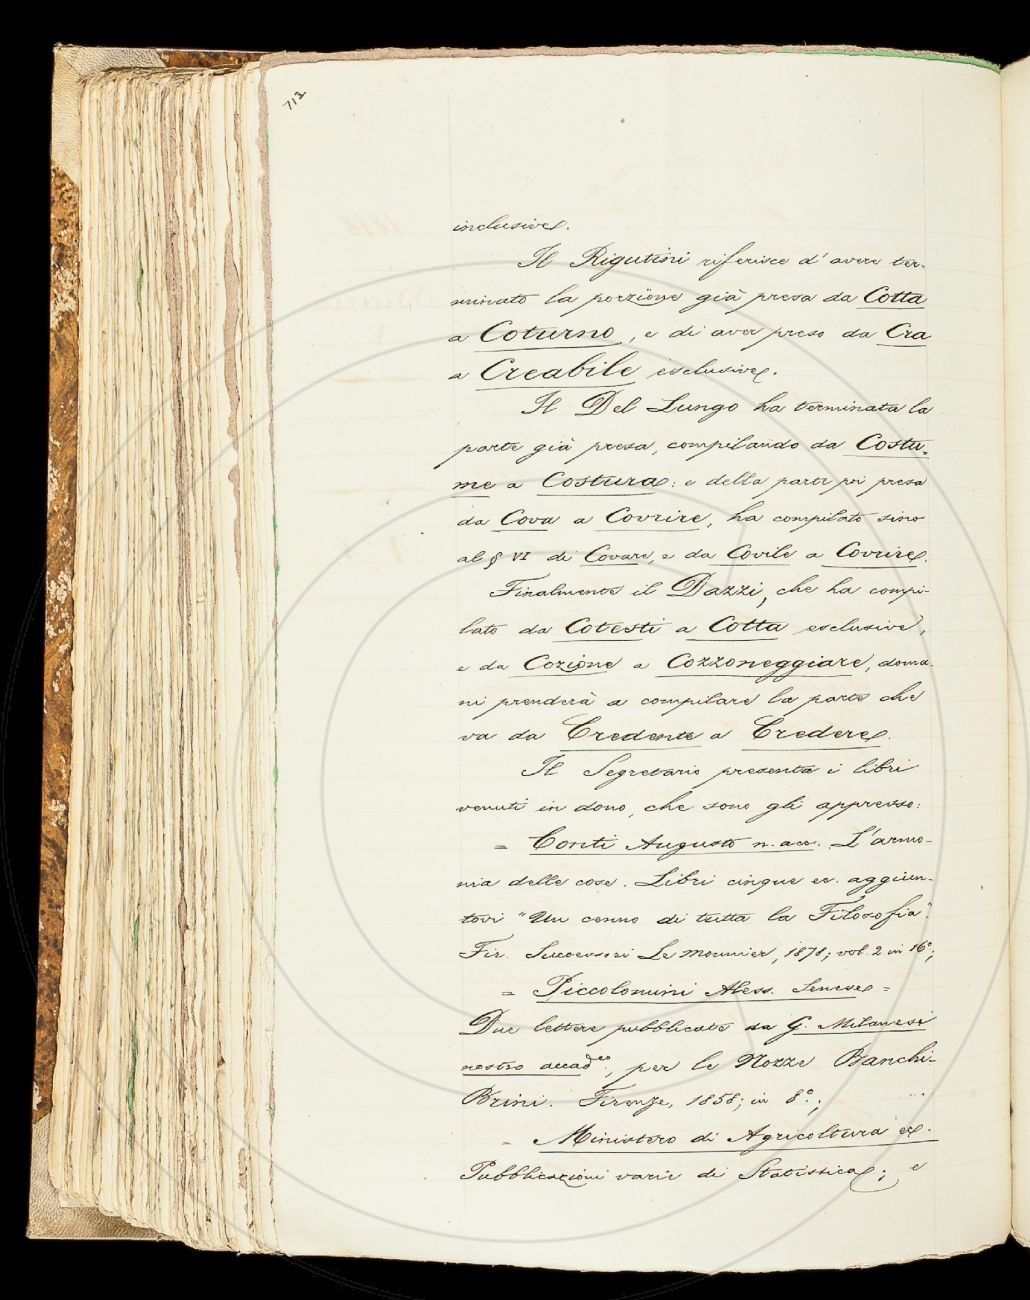 712
inclusive.
Il Rigutini riferisce d'avere ter-
minato la porzione già presa da Cotta
a Coturno, e di aver preso da Cra
a Creabile esclusive.
Il Del Lungo ha terminata la
parte già presa, compilando da Costu-
me a Costura: e della parte poi presa
da Cova a Covrire, ha compilato sino
al § VI di Covare, e da Covile a Covrire.
Finalmente il Dazzi, che ha compi-
lato da Cotesti a Cotta esclusive,
e da Cozione a Cozzoneggiare, doma-
ni prenderà a compilare la parte che
va da Credente a Credere.
Il Segretario presenta i libri
venuti in dono, che sono gli appresso:
= Conti Augusto n. acc. L'armo-
nia delle cose. Libri cinque ec. aggiun-
tovi "Un cenno di tutta la Filosofia".
Fir. Successori Le Monnier, 1878; vol. 2 in 16°;
= Piccolomini Aless. Senese =
Due lettere pubblicate da G. Milanesi
nostro accad.co, per le Nozze Banchi-
Brini. Firenze, 1858; in 8°;
= Ministero di Agricoltura ec.
Pubblicazioni varie di Statistica; e